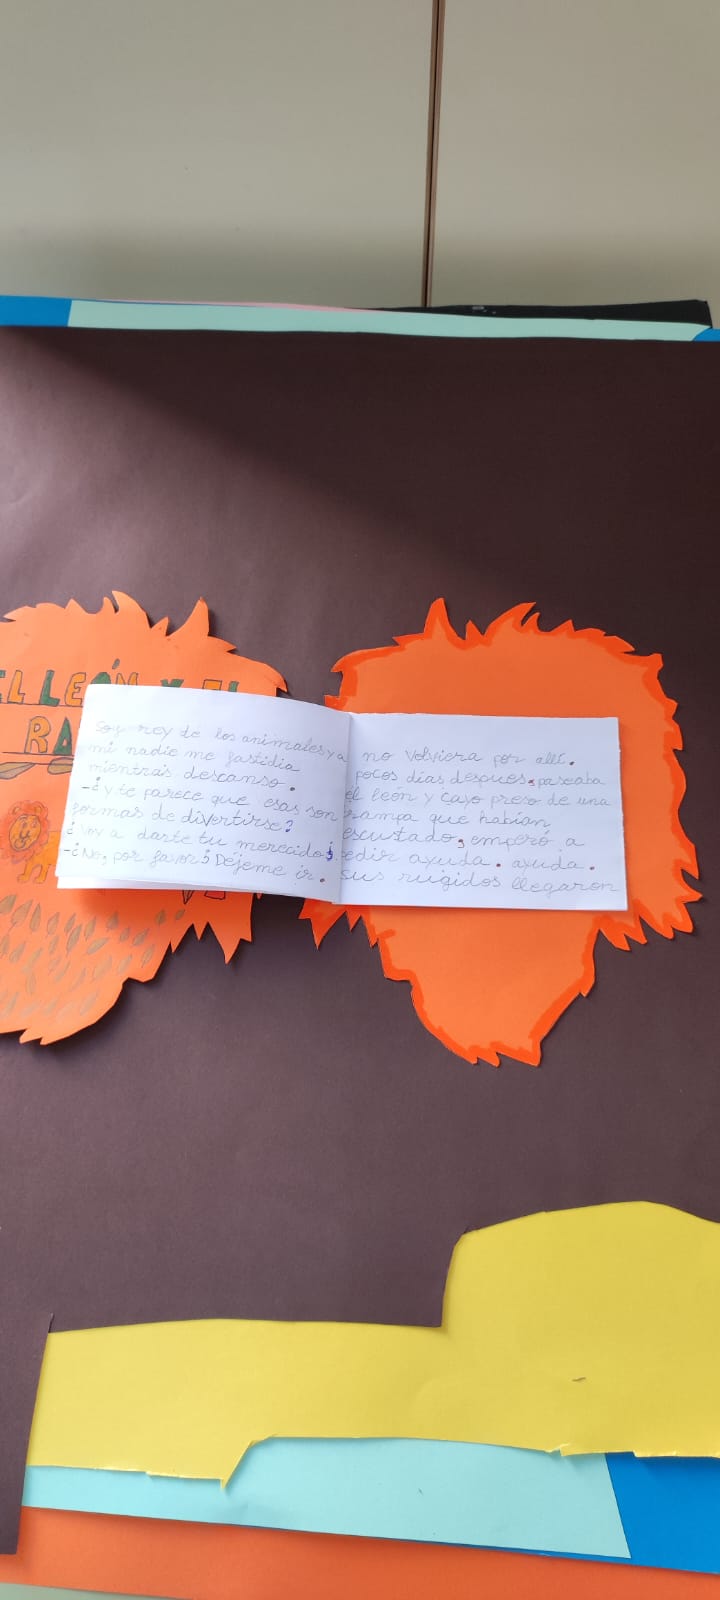 EL LEÓN Y EL
RA
Soy rey de los animales y a
mi nadie me fastidia
mientras descanso.
-¿y te parece que esas son
formas de divertirse?
¡Voy a darte tu merecido!
-¡No, por favor! Déjeme ir.
no volviera por allí.
pocos días despues, paseaba
el león y cayo preso de una
rampa que habían
escustado, emperó a
edir ayuda. ayuda.
sus ruigidos llegaron